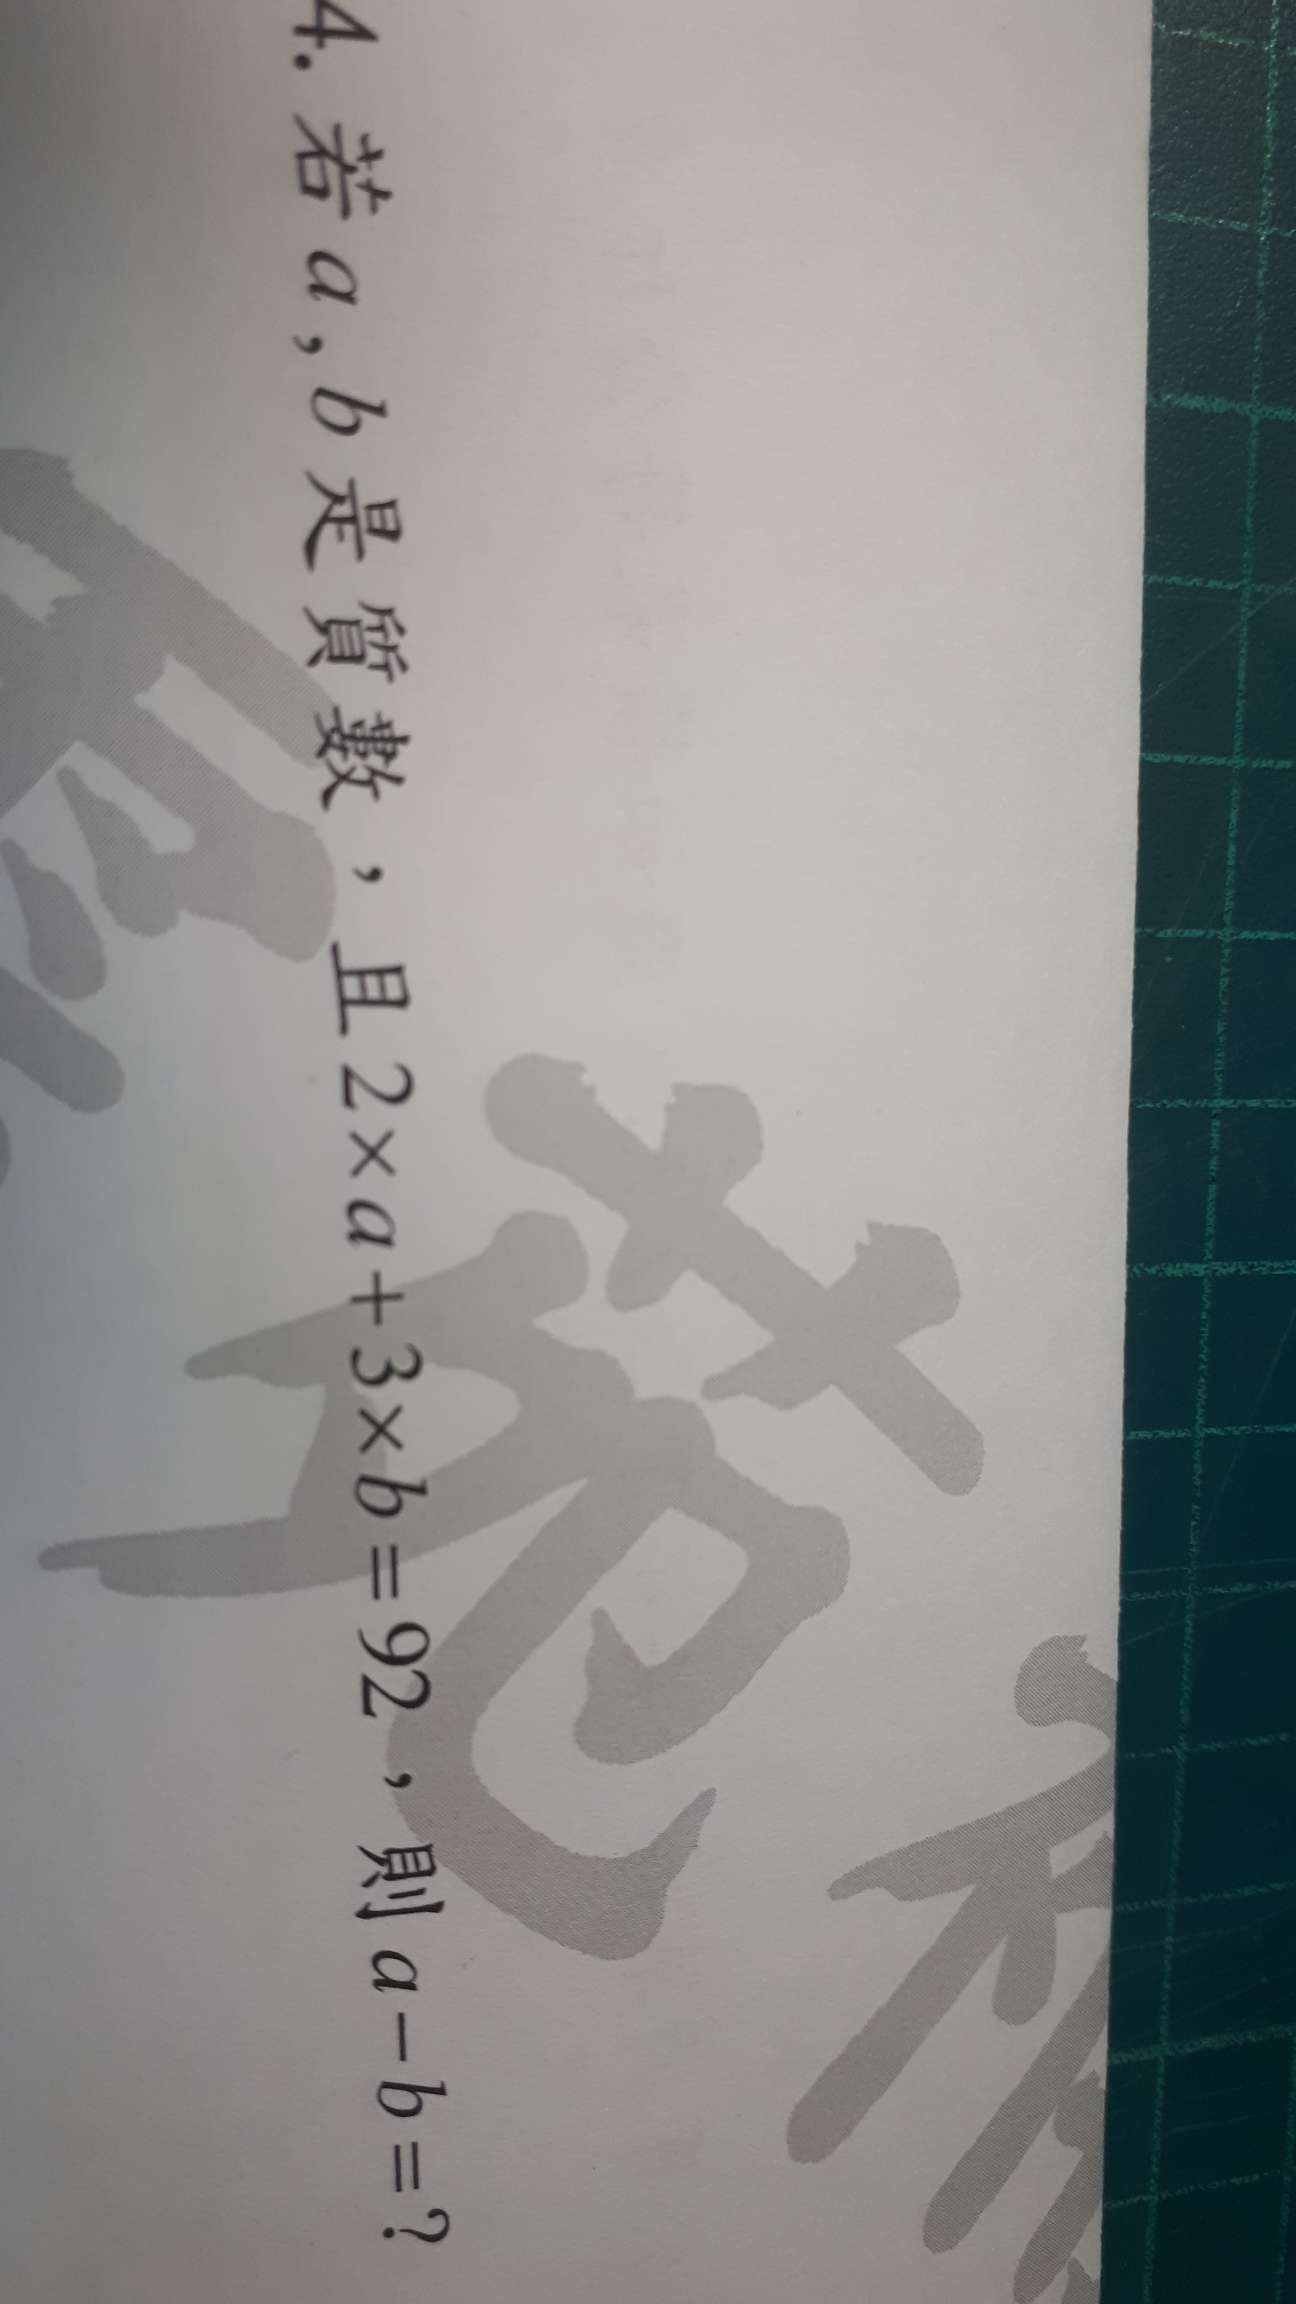 4. 若 a , b 是質數，且 2×a+3×b=92，則 a-b=?